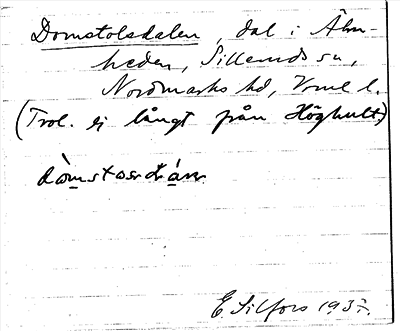 Domstolsdalen, dal i Älm-
heden, Silleruds sn,
Nordmarks hd, Vrml l.
(Trol. ej långt från Höghult)
E. Silfors 193